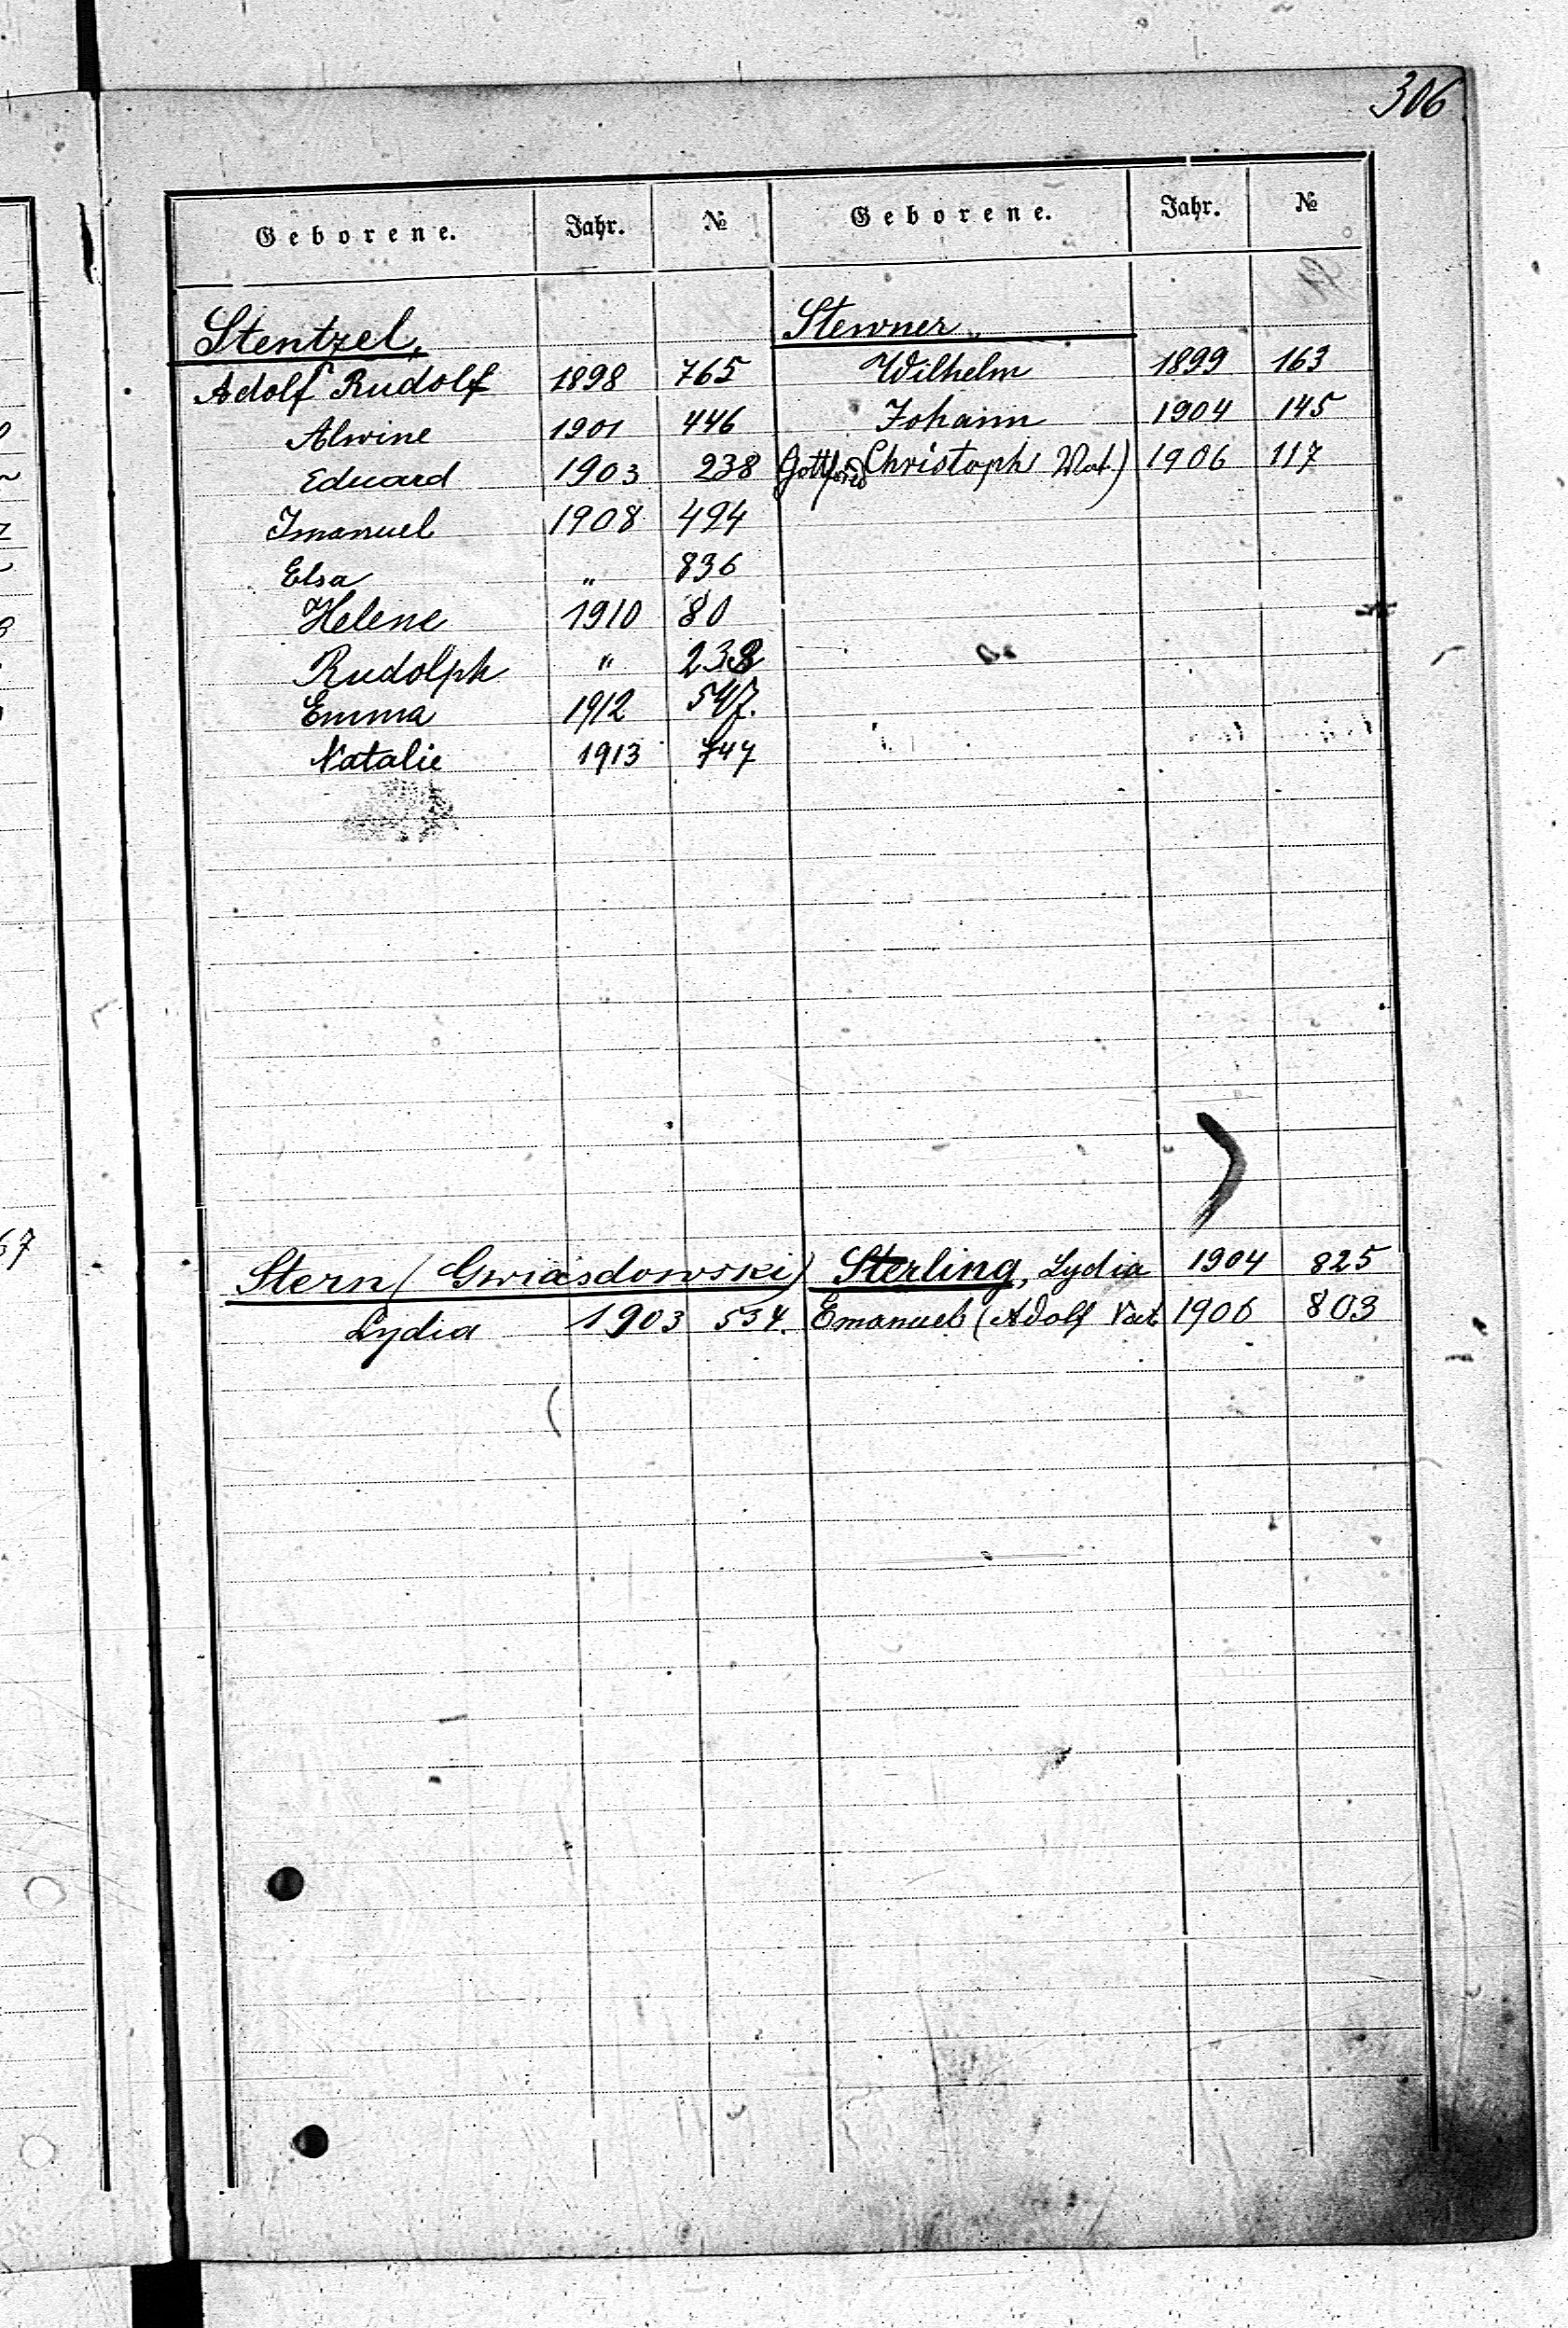 306
Geborene. Jahr. № Geborene. Jahr. №
Stentzel,
Adolf Rudolf 1898 765
Alwine 1901 446
Eduard 1903 238
Imanuel 1908 494
Elsa " 836
Helene 1910 80
Rudolph " 238
Emma 1912 547.
Natalie 1913 747
Stewner
Wilhelm 1899 163
Johann 1904 145
Gottfried (Christoph Vat) 1906 117
Stern (Gwiasdowski)
Lydia 1903 534.
Sterling, Lydia 1904 825
Emanuel (Adolf Vat 1906 803
67